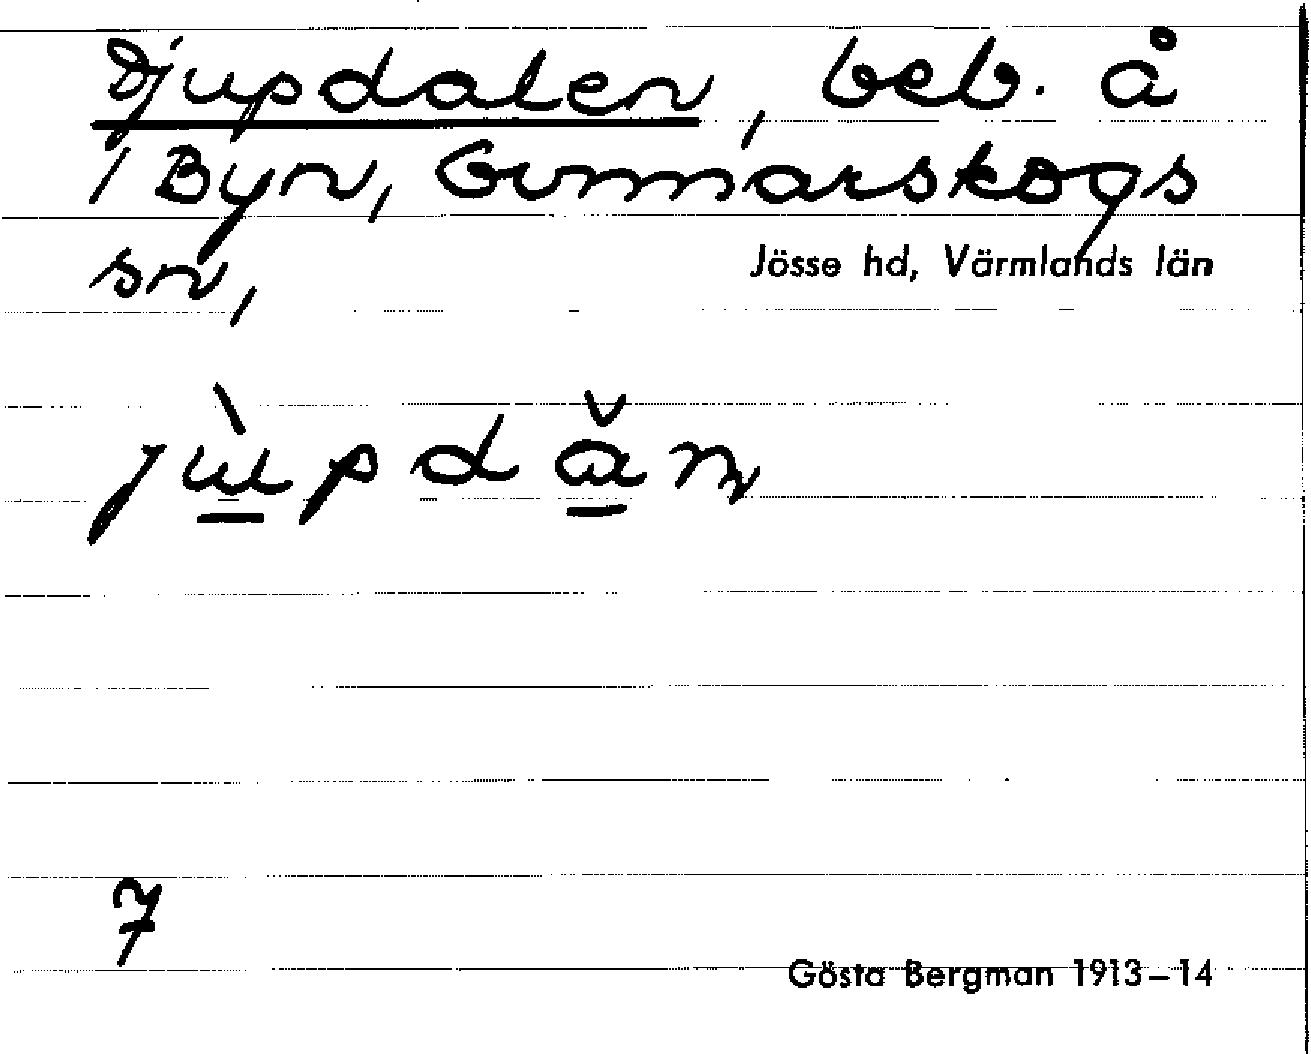 Djupdalen, beb. å
1 Byn, Gunnarskogs
sn,
Jösse hd, Värmlands län
jùpdǎn
7
Gösta Bergman 1913–14